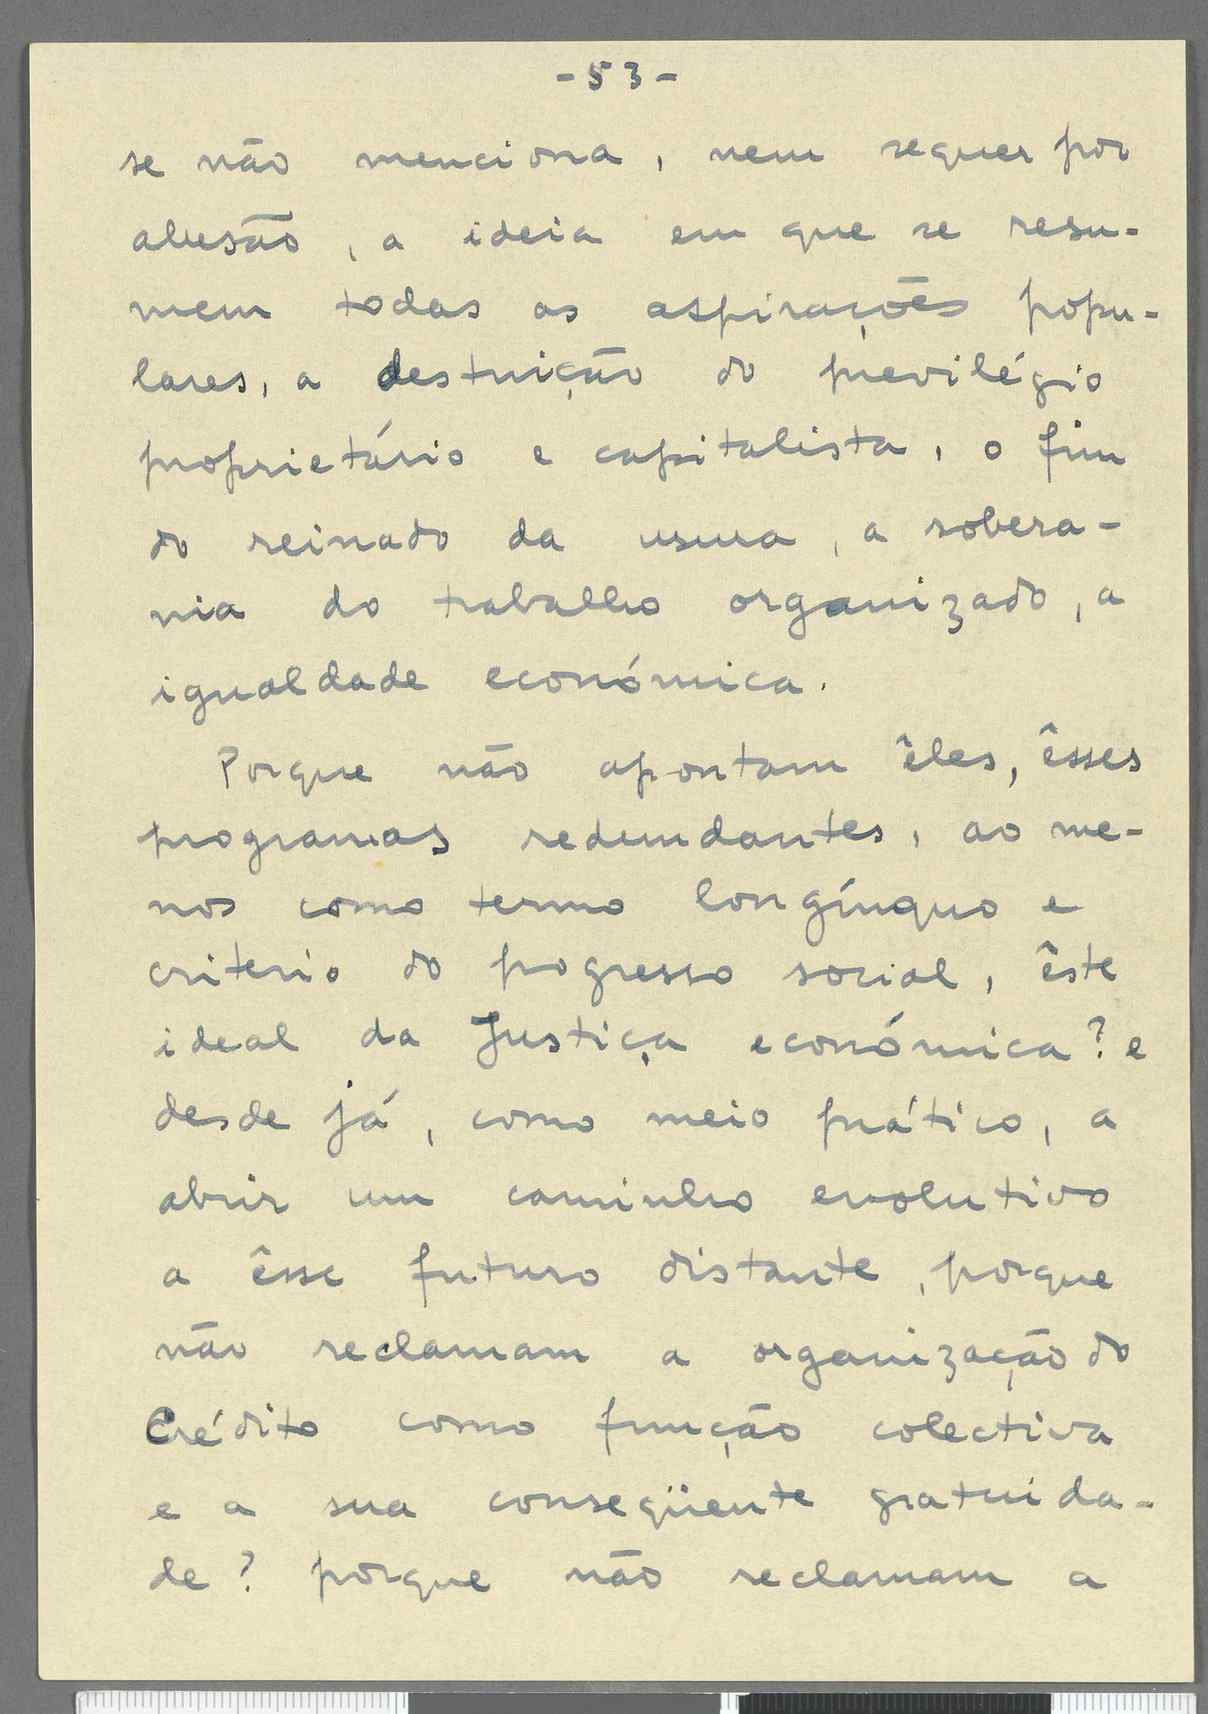 -53-
se não menciona, nem sequer por
alusão, a ideia em que se resu-
mem todas as aspirações popu-
lares, a destruição do previlégio
proprietário e capitalista, o fim
do reinado da usura, a sobera-
nia do trabalho organizado, a
igualdade económica.
Porque não apontam êles, êsses
programas redundantes, ao me-
nos como termo longínquo e
criterio do progresso social, êste
ideal da Justiça económica? e
desde já, como meio prático, a
abrir um caminho evolutivo
a êsse futuro distante, porque
não reclamam a organização do
Crédito como função colectiva
e a sua conseqüente gratuida-
de? porque não reclamam a